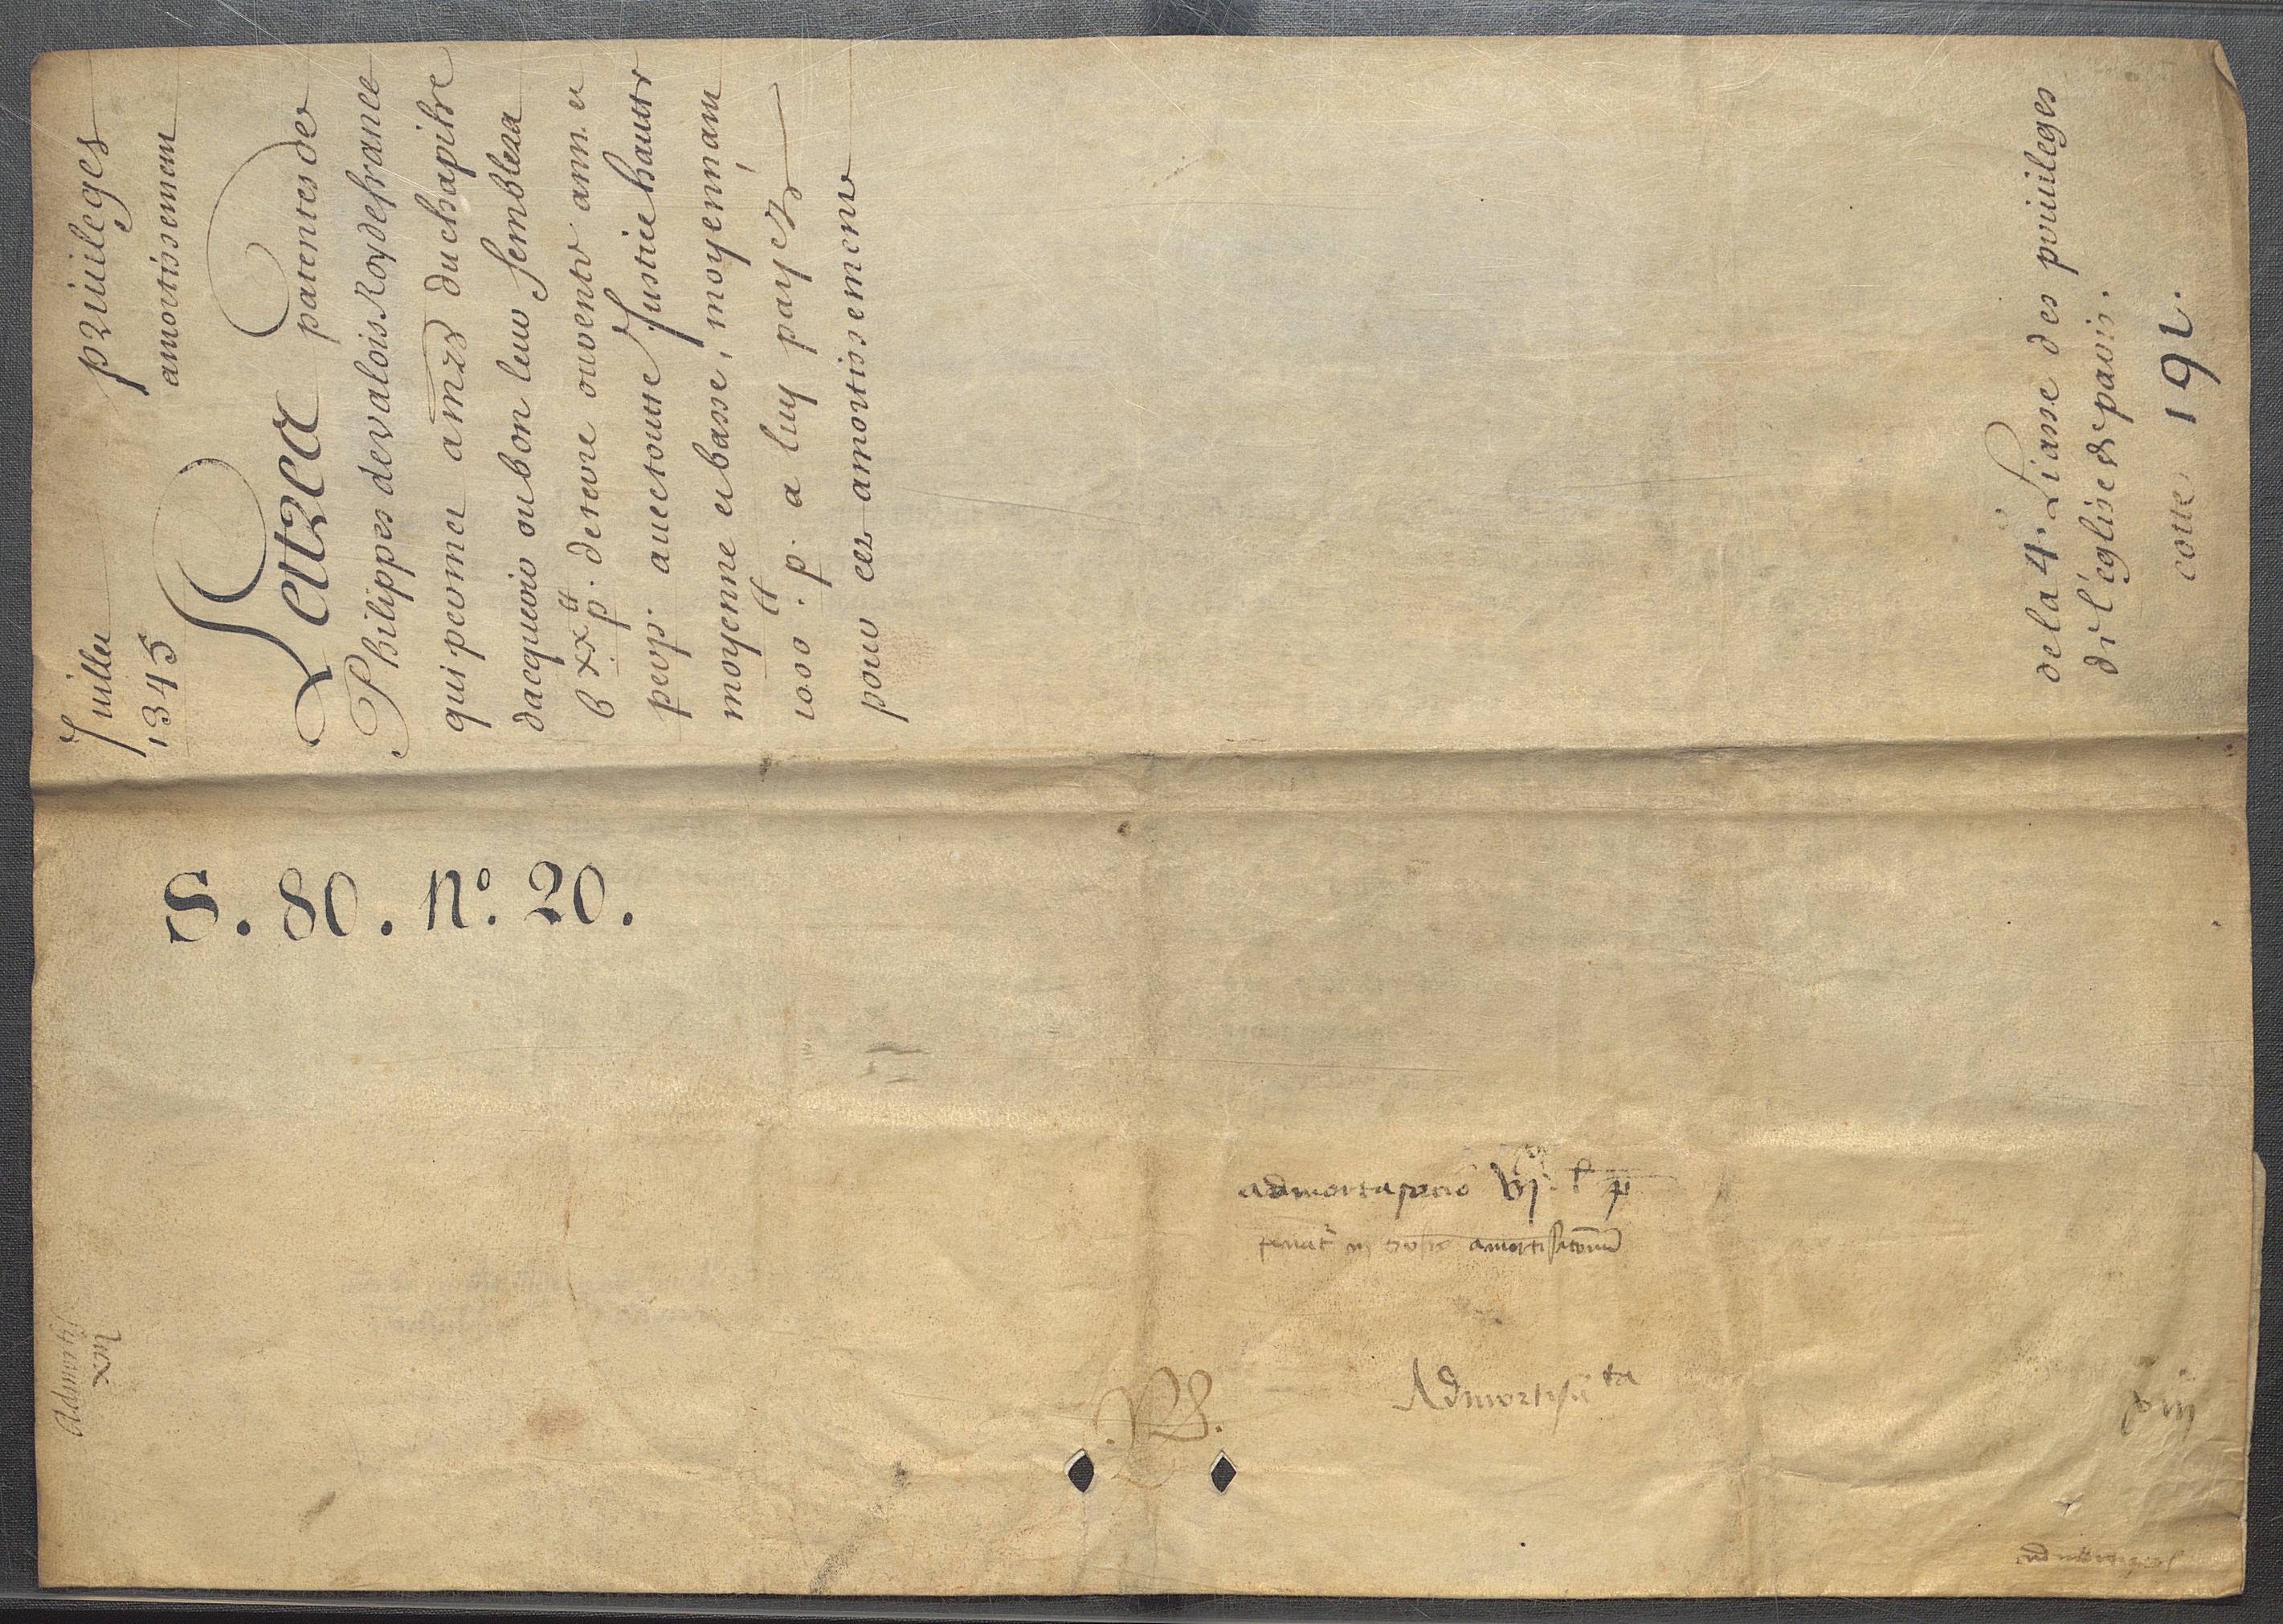 Juillet
1345
priuileges
amortissement
Lettres patentes de
Philippes de valois Roy de france
qui permet a mrs du chapitre
dacquerir ou bon leur semblera
6xx tt p. de terre ou rente ann. et
perp. auec toutte Justice hautte
moyenne et basse, moyennant
1000 tt p. a luy payez
pour cet amortissement
de la 4. Liasse des priuileges
de l'eglise de paris.
cotte 191.
S. 80. N°. 20.
admortisacio vj l p
amortisacionum
Admortisata
Admortis
xiij
xiij